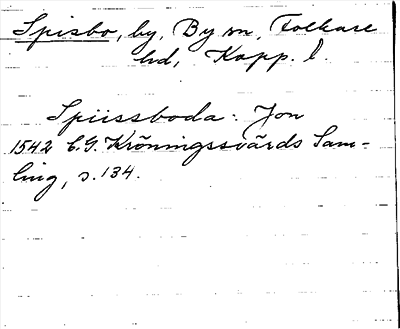 Spisbo, by, By sn, Folkare
hd, Kopp. l.
Spiissboda: Jon
1542 C.G. Kröningssvärds Sam-
ling, s. 134.